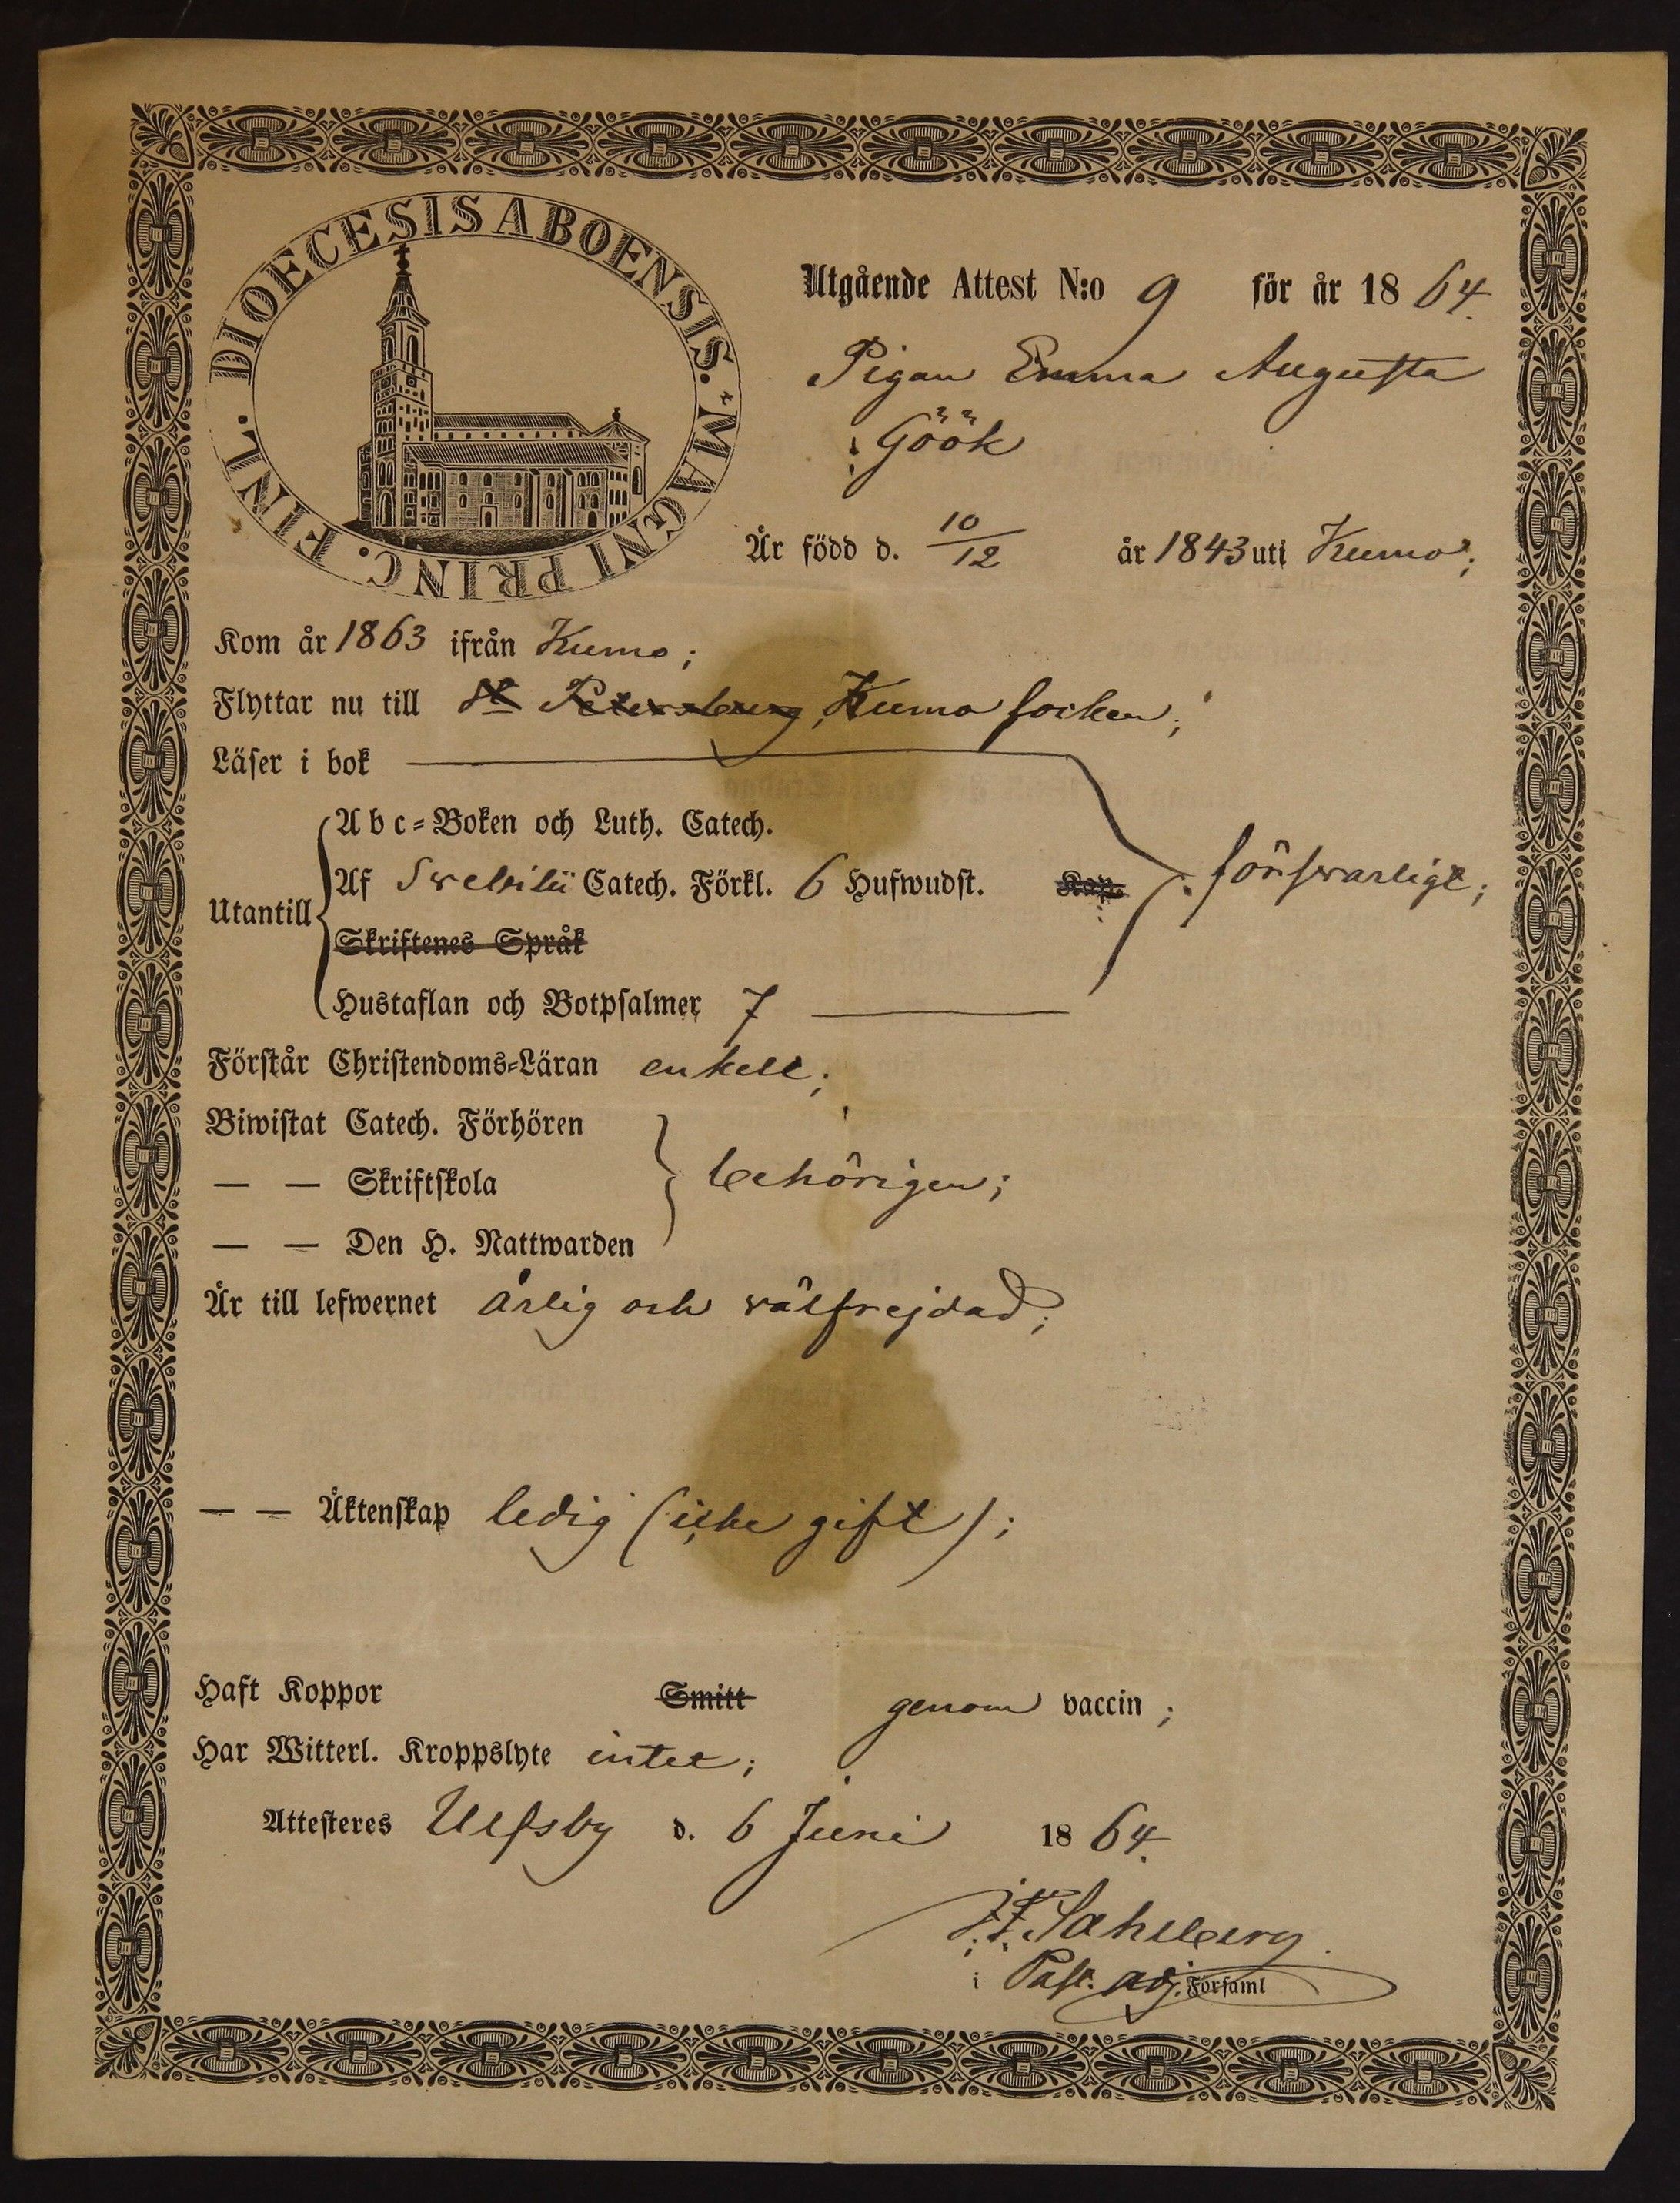 DIOECESIS ABOENSIS. MAGNI PRINC. FINL.
Utgående Attest N:o 9 för år 1864.
Pigan Emma Augusta
Göök
Är född d. 10/12 år 1843 uti Kumo;
Kom år 1863 ifrån Kumo;
Flyttar nu till St Petersburg, Kumo socken;
Läser i bok
Abc=Boken och Luth. Catech.
Af Swebilii Catech. Förkl. 6 Hufwudst. Kap. försvarligt;
Utantill
Skriftenes Språk
Hustaflan och Botpsalmer 7
Förstår Christendoms=Läran enkelt;
Biwistat Catech. Förhören
— — Skriftskola behörigen;
— — Den H. Nattwarden
Är till lefwernet ärlig och välfrejdad;
— — Äktenskap ledig (icke gift);
Haft Koppor Smitt genom vaccin;
Har Witterl. Kroppslyte intet;
Attesteres Ulfsby d. 6 Juni 1864.
Sahlberg.
i Past. adj. Församl